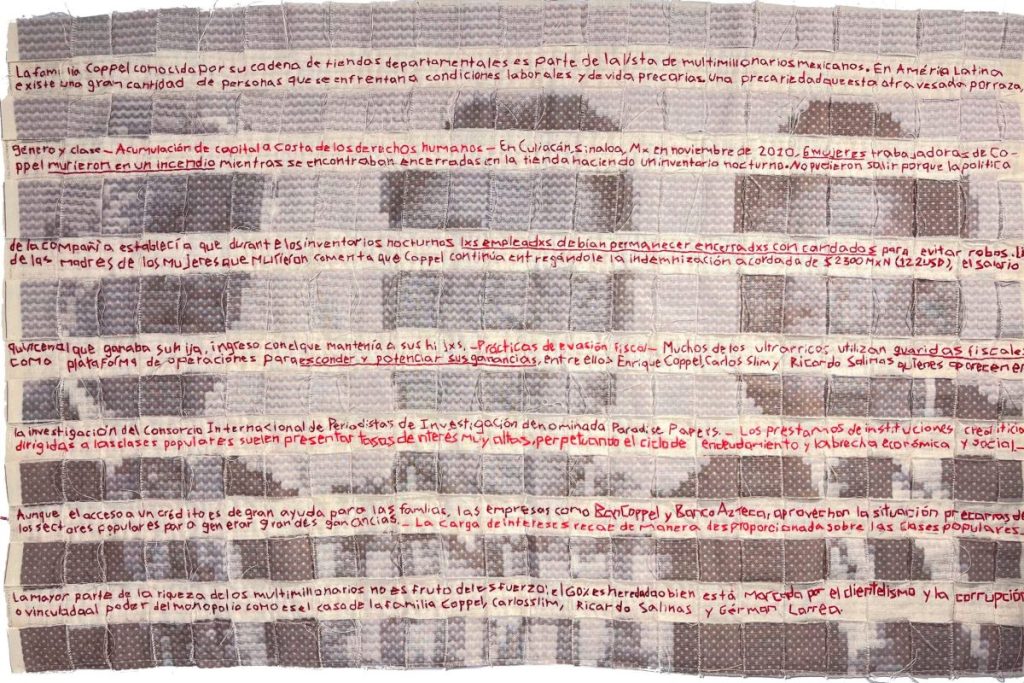 La familia Coppel conocida por su cadena de tiendas departamentales es parte de la lista de multimillonarios mexicanos. En América Latina
existe una gran cantidad de personas que se enfrentan a condiciones laborales y de vida precarias. Una precariedad que esta atravesada por raza,
género y clase — Acumulación de capital a costa de los derechos humanos — En Culiacán, Sinaloa, Mx en noviembre de 2010, 6 mujeres trabajadoras de Co-
ppel murieron en un incendio mientras se encontraban encerradas en la tienda haciendo un inventario nocturno. No pudieron salir porque la política
de la compañia establecía que durante los inventarios nocturnos lxs empleadxs debían permanecer encerradxs con candados para evitar robos.
de las madres de las mujeres que murieron comenta que Coppel continúa entregándole la indemnización acordada de $2300 MXN (122 USD), el salario
quincenal que ganaba su hija, ingreso con el que mantenía a sus hijxs. — Prácticas de evasión fiscal — Muchos de los ultrarricos utilizan guaridas fiscales
como plataforma de operaciones para esconder y potenciar sus ganancias, entre ellos Enrique Coppel, Carlos Slim y Ricardo Salinas quienes aparecen en
la investigación del Consorcio Internacional de Periodistas de Investigación denominada Paradise Papers. — Los prestamos de instituciones crediticia
dirigidas a las clases populares suelen presentar tasas de interés muy altas, perpetuando el ciclo de endeudamiento y la brecha económica y social.—
Aunque el acceso a un crédito es de gran ayuda para las familias, las empresas como BanCoppel y Banco Azteca, aprovechan la situación precaria de
los sectores populares para generar grandes ganancias. — La carga de intereses recae de manera desproporcionada sobre las clases populares.
La mayor parte de la riqueza de los multimillonarios no es fruto del esfuerzo; el 60% es heredada o bien está marcada por el clientelismo y la corrupción
o vinculada al poder del monopolio como es el caso de la familia Coppel, Carlos Slim, Ricardo Salinas y Gérman Larrea.